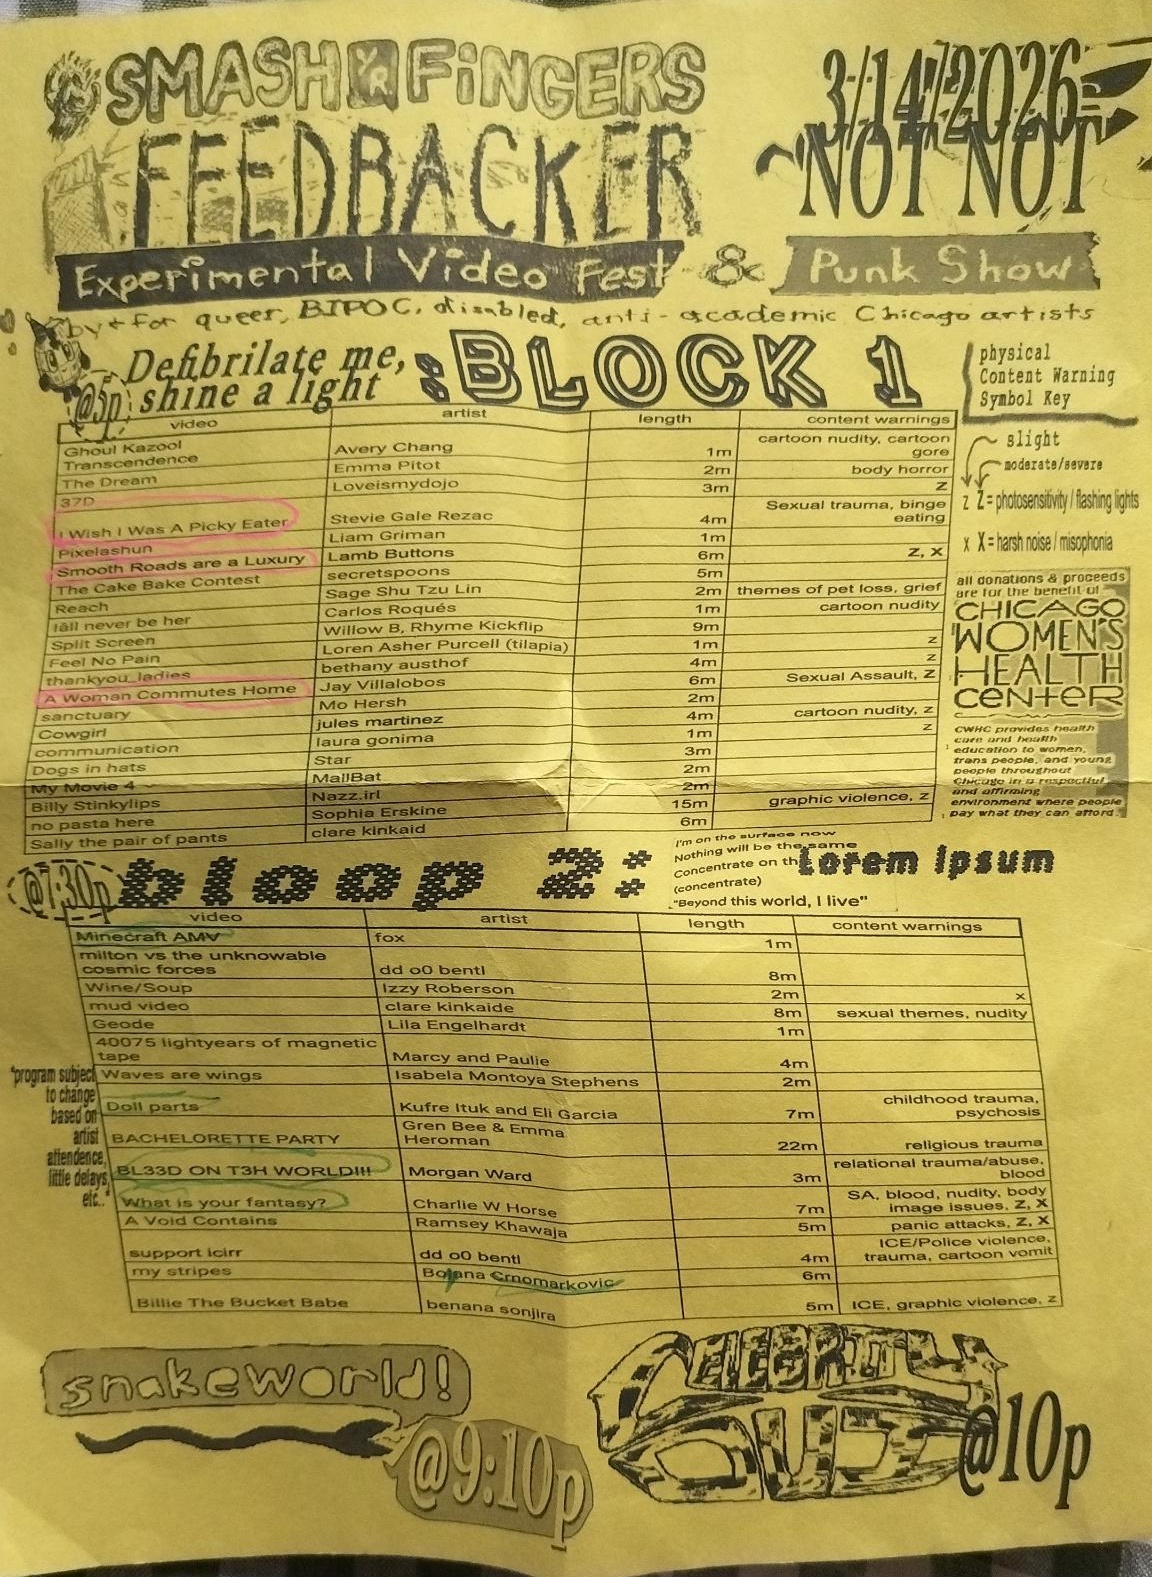 SMASH YR FiNGERS
FEEDBACKER
3/14/2026
NOT NOT
Experimental Video Fest & Punk Show
by + for queer, BIPOC, disabled, anti-academic Chicago artists
@5p
Defibrilate me,
shine a light
:BLOCK 1
physical
Content Warning
Symbol Key
slight
moderate/severe
z Z = photosensitivity / flashing lights
x X = harsh noise / misophonia
video artist length content warnings
Ghoul Kazool Transcendence Avery Chang 1m cartoon nudity, cartoon gore
The Dream Emma Pitot 2m body horror
37D Loveismydojo 3m z
I Wish I Was A Picky Eater Stevie Gale Rezac 4m Sexual trauma, binge eating
Pixelashun Liam Griman 1m
Smooth Roads are a Luxury Lamb Buttons 6m Z, X
The Cake Bake Contest secretspoons 5m
Reach Sage Shu Tzu Lin 2m themes of pet loss, grief
Iâll never be her Carlos Roqués 1m cartoon nudity
Split Screen Willow B, Rhyme Kickflip 9m
Feel No Pain Loren Asher Purcell (tilapia) 1m z
thankyou_ladies bethany austhof 4m z
A Woman Commutes Home Jay Villalobos 6m Sexual Assault, z
sanctuary Mo Hersh 2m
Cowgirl jules martinez 4m cartoon nudity, z
communication laura gonima 1m z
Dogs in hats Star 3m
My Movie 4 MallBat 2m
Billy Stinkylips Nazz.irl 2m
no pasta here Sophia Erskine 15m graphic violence, z
Sally the pair of pants clare kinkaid 6m
all donations & proceeds
are for the benefit of
CHICAGO
WOMEN'S
HEALTH
CENTER
CWHC provides health
care and health
education to women,
trans people, and young
people throughout
Chicago in a respectful
and affirming
environment where people
pay what they can afford.
@7:30p
bloop 2:
I'm on the surface now
Nothing will be the same
Concentrate on th
(concentrate)
"Beyond this world, I live"
Lorem Ipsum
video artist length content warnings
Minecraft AMV fox 1m
milton vs the unknowable cosmic forces dd o0 bentl 8m
Wine/Soup Izzy Roberson 2m x
mud video clare kinkaide 8m sexual themes, nudity
Geode Lila Engelhardt 1m
40075 lightyears of magnetic tape Marcy and Paulie 4m
Waves are wings Isabela Montoya Stephens 2m
Doll parts Kufre Ituk and Eli Garcia 7m childhood trauma, psychosis
BACHELORETTE PARTY Gren Bee & Emma Heroman 22m religious trauma
BL33D ON T3H WORLD!!! Morgan Ward 3m relational trauma/abuse, blood
What is your fantasy? Charlie W Horse 7m SA, blood, nudity, body image issues, Z, X
A Void Contains Ramsey Khawaja 5m panic attacks, Z, X
support icirr dd o0 bentl 4m ICE/Police violence, trauma, cartoon vomit
my stripes Bojana Crnomarkovic 6m
Billie The Bucket Babe benana sonjira 5m ICE, graphic violence, z
"program subject
to change
based on
artist
attendence,
little delays,
etc.."
snakeworld!
@9:10p
CELEBRITY
@10p